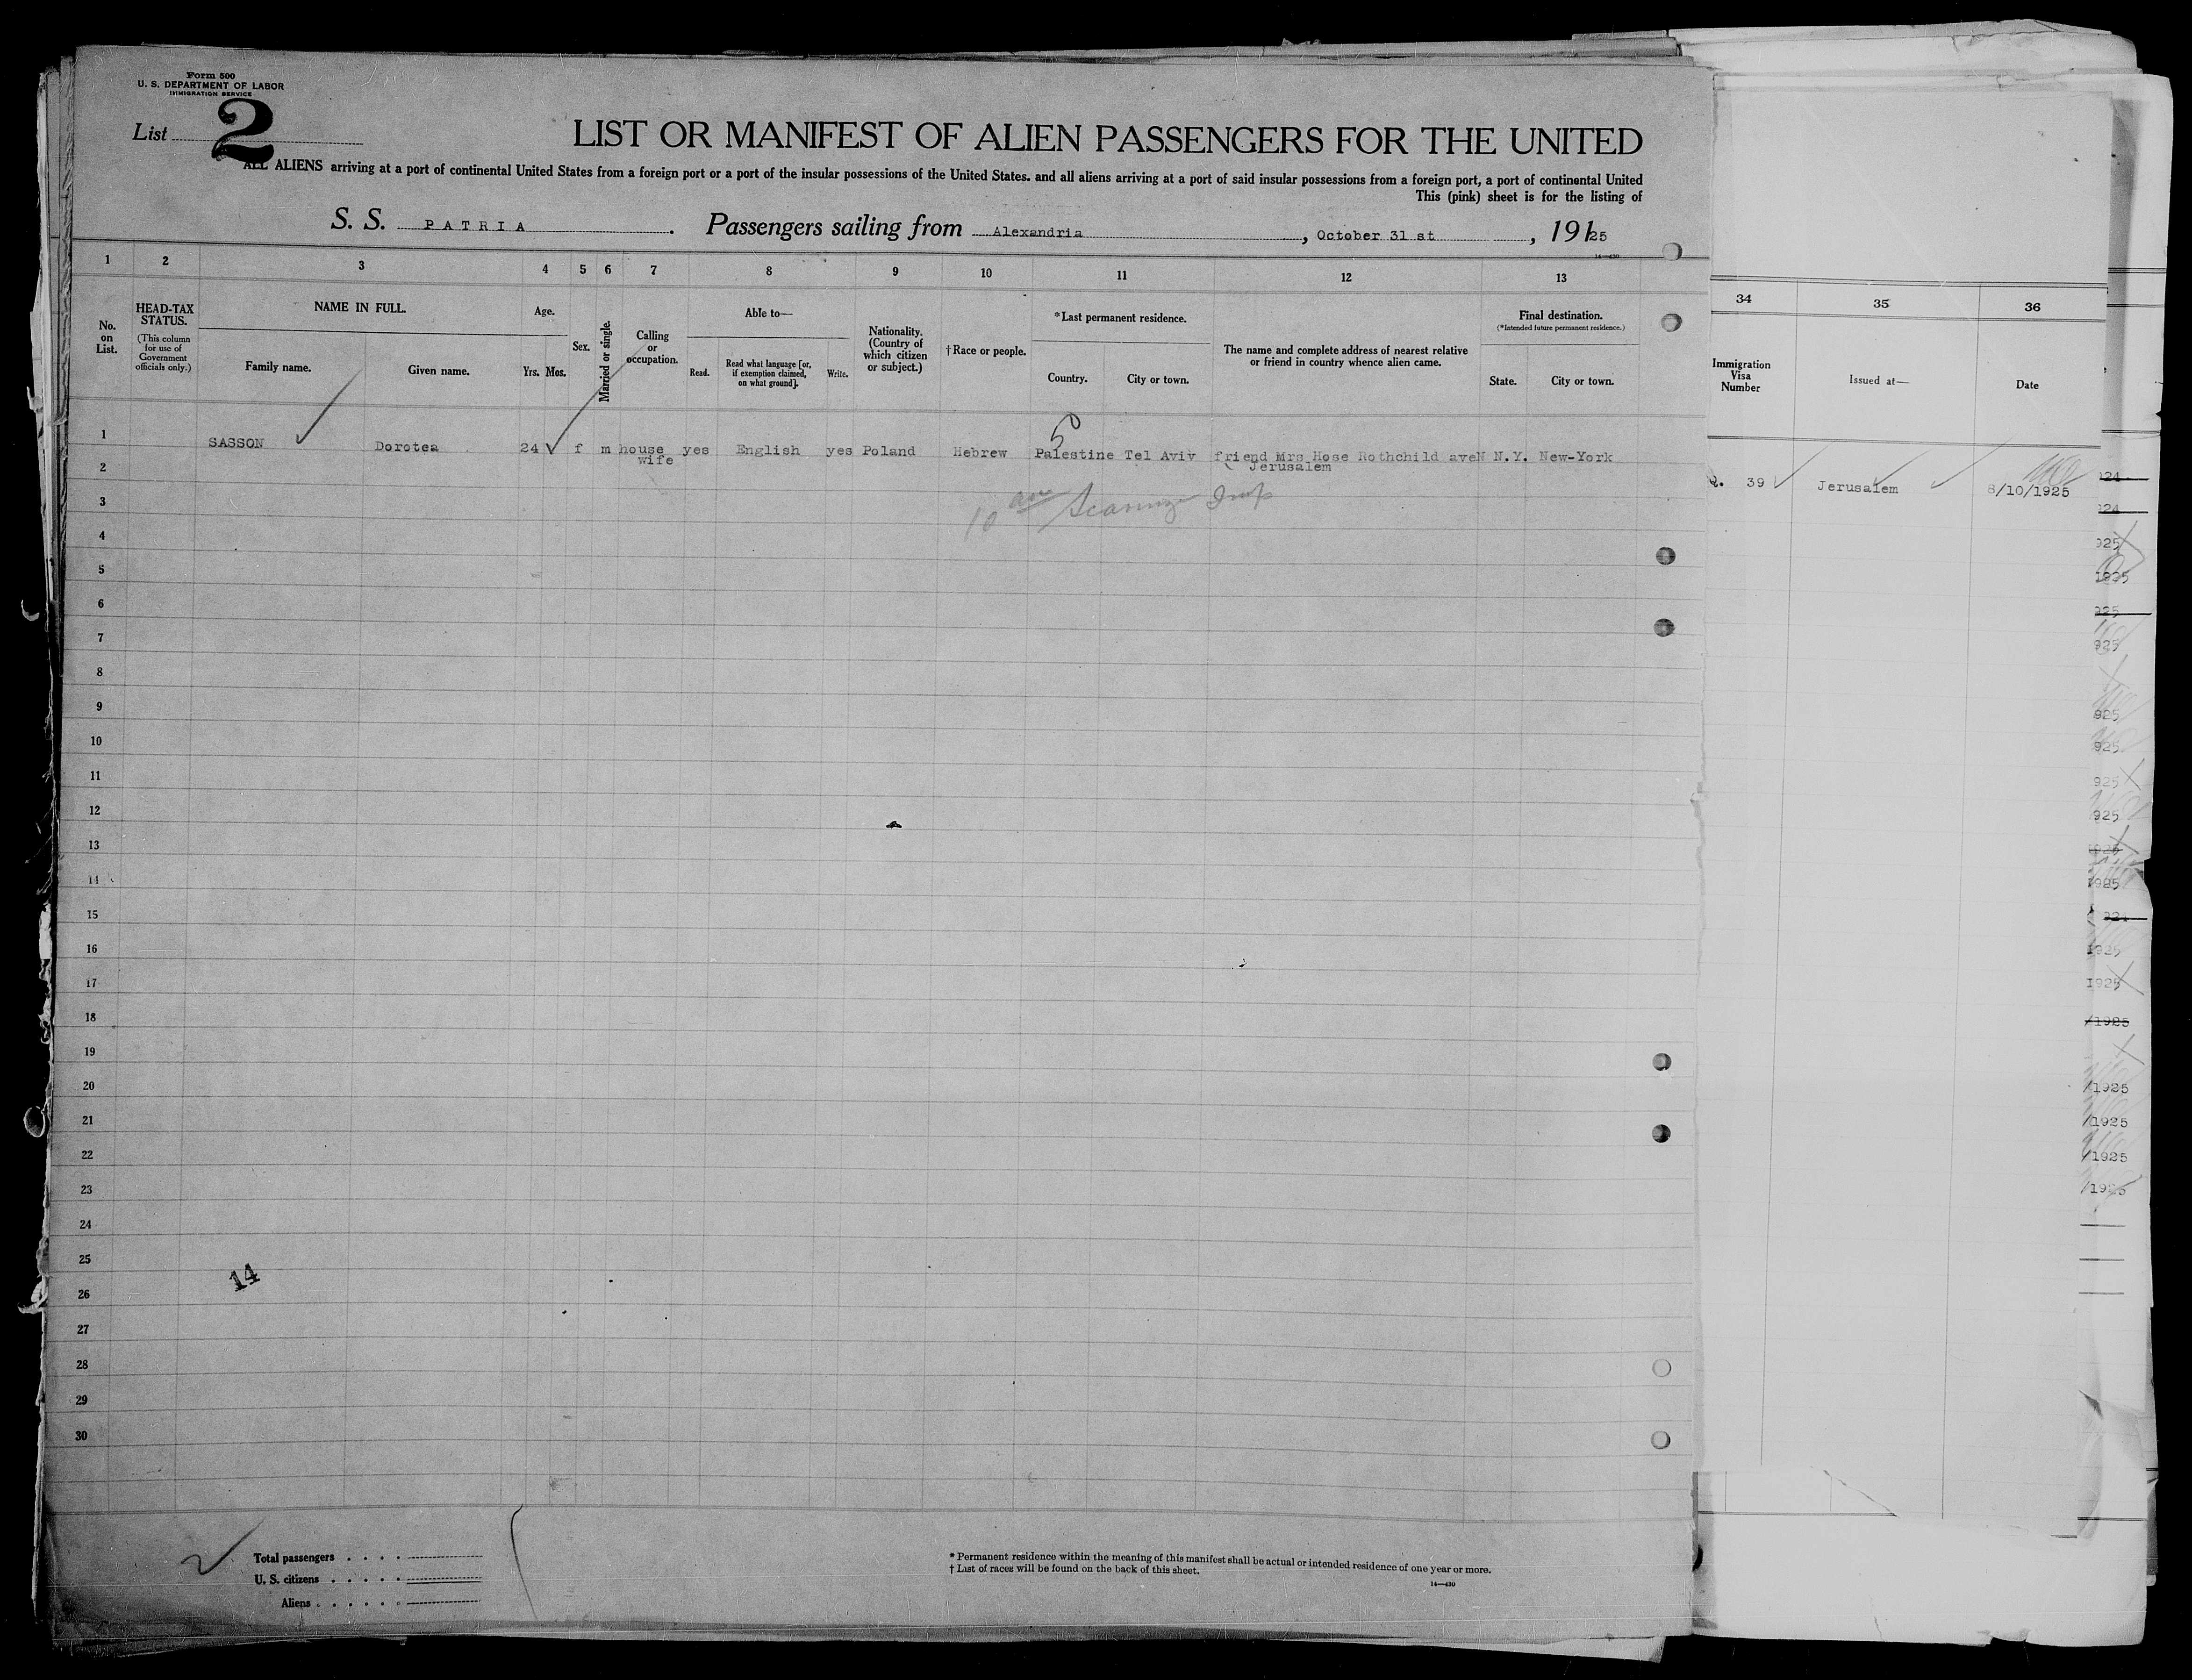 Form 500
U. S. DEPARTMENT OF LABOR
IMMIGRATION SERVICE
List 2
LIST OR MANIFEST OF ALIEN PASSENGERS FOR THE UNITED
ALL ALIENS arriving at a port of continental United States from a foreign port or a port of the insular possessions of the United States. and all aliens arriving at a port of said insular possessions from a foreign port, a port of continental United
This (pink) sheet is for the listing of
S. S. PATRIA. Passengers sailing from Alexandria, October 31 st, 19125
14—430
1 2 3 4 5 6 7 8 9 10 11 12 13 34 35 36
No. on List.
HEAD-TAX STATUS.
(This column for use of Government officials only.)
NAME IN FULL.
Family name. Given name.
Age.
Yrs. Mos.
Sex.
Married or single.
Calling or occupation.
Able to—
Read. Read what language [or, if exemption claimed, on what ground]. Write.
Nationality. (Country of which citizen or subject.)
†Race or people.
*Last permanent residence.
Country. City or town.
The name and complete address of nearest relative or friend in country whence alien came.
Final destination.
(*Intended future permanent residence.)
State. City or town.
Immigration Visa Number
Issued at—
Date
5
1 SASSON Dorotea 24 f m house wife yes English yes Poland Hebrew Palestine Tel Aviv friend Mrs Hose Rothchild aveN Jerusalem N.Y. New-York
39 Jerusalem 8/10/1925
2
3
10
4
5
6
7
8
9
10
11
12
13
14
15
16
17
18
19
20
21
22
23
24
25
14
26
27
28
29
30
924
924
925
1925
925
925
925
925
925
925
1925
1925
924
1925
1925
/1925
/1925
/1925
/1925
/1925
Total passengers
U. S. citizens
Aliens
* Permanent residence within the meaning of this manifest shall be actual or intended residence of one year or more.
† List of races will be found on the back of this sheet.
14—430